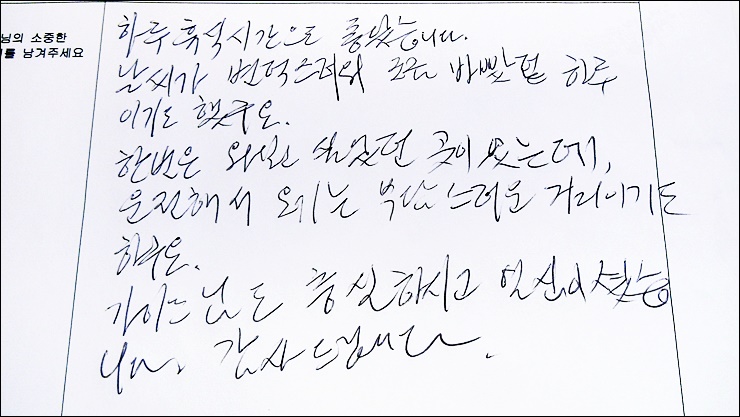 님의 소중한
를 남겨주세요
하루 휴식시간으로 좋았습니다.
날씨가 변덕스러워 조금 바빴던 하루
이기도 했구요.
한번은 와보고 싶었던 곳이었는데,
운전해서 오기는 부담스러운 거리이기도
하구요.
가이드님도 충실하시고 열심이셨습
니다. 감사드립니다.